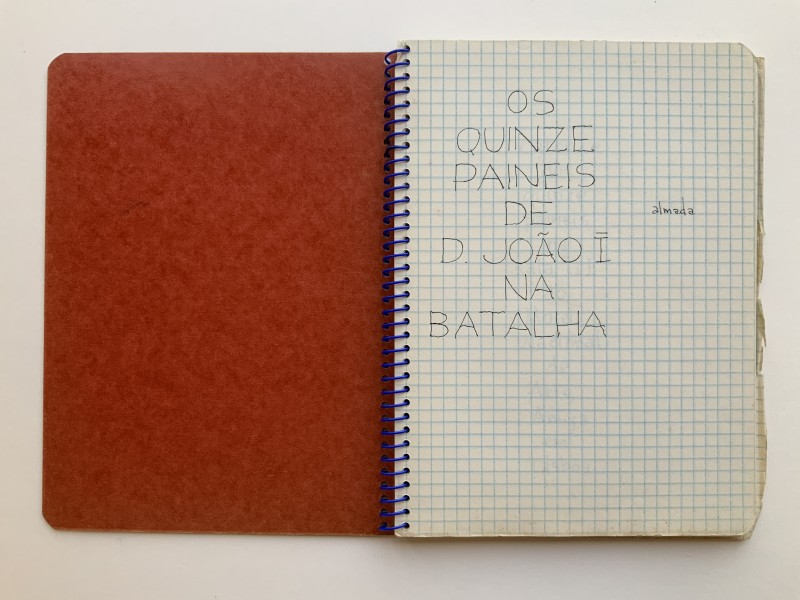 OS
QUINZE
PAINEIS
DE
almada
D. JOÃO Ī
NA
BATALHA